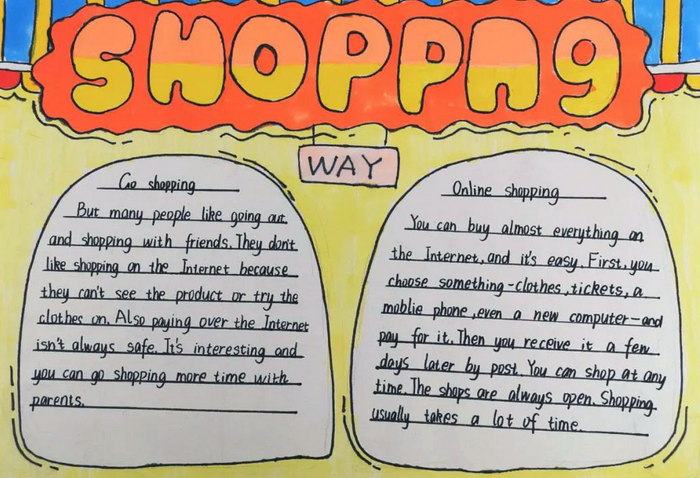 SHOPPNG
WAY
Go shopping
But many people like going out
and shopping with friends. They don't
like shopping on the Internet because
they can't see the product or try the
clothes on. Also paying over the Internet
isn't always safe. It's interesting and
you can go shopping more time with
parents.
Online shopping
You can buy almost everything on
the Internet, and it's easy. First, you
choose something-clothes, tickets, a
moblie phone, even a new computer-and
pay for it. Then you receive it a few
days later by post. You can shop at any
time. The shops are always open. Shopping
usually takes a lot of time.